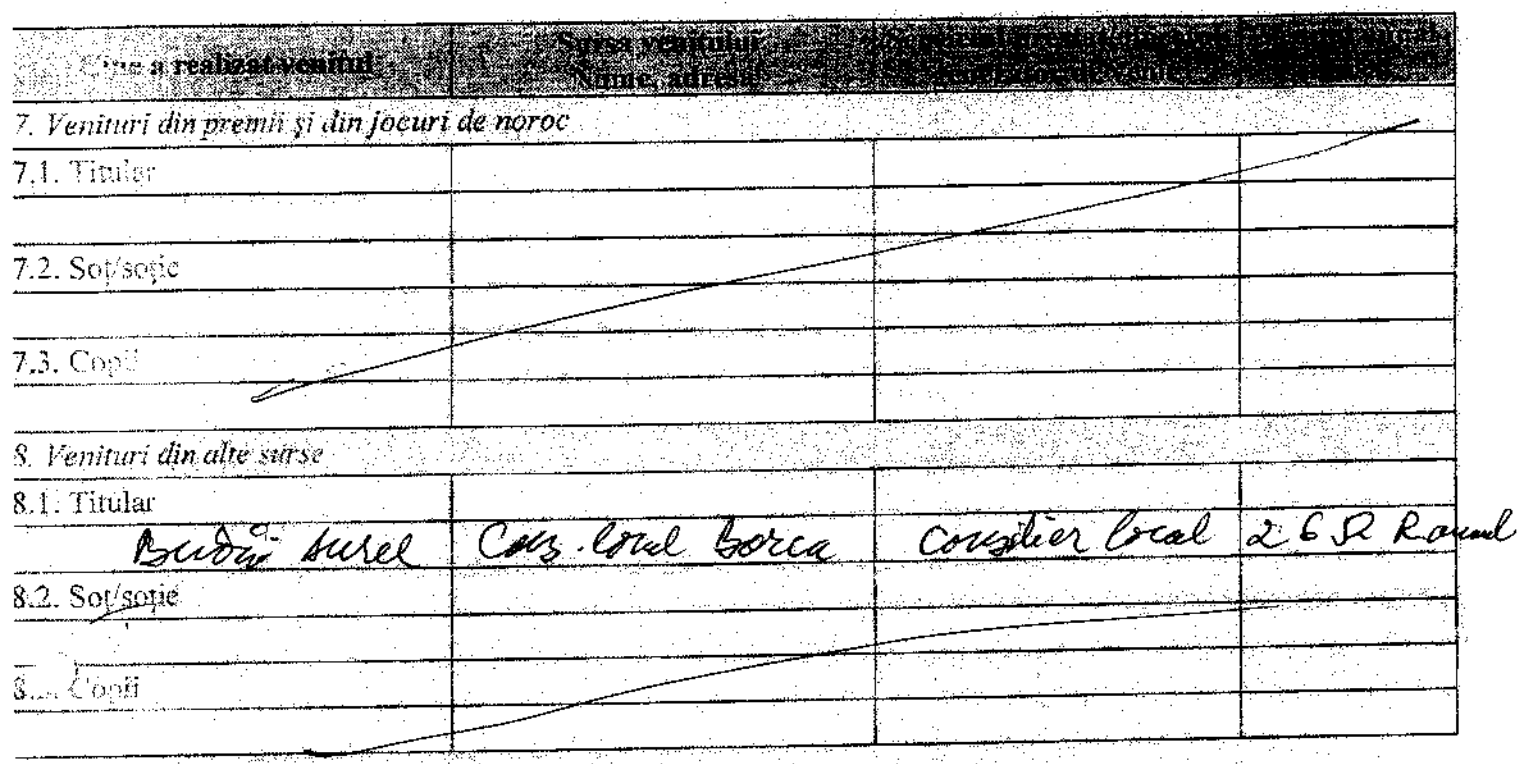 Cine a realizat venitul
Sursa venitului
Nume, adresa
de venit
anual
7. Venituri din premii și din jocuri de noroc
7.1. Titular
7.2. Soț/soție
7.3. Copii
8. Venituri din alte surse
8.1. Titular
Aurel Cons. local Borca consilier local
8.2. Soț/soție
8.3. Copii